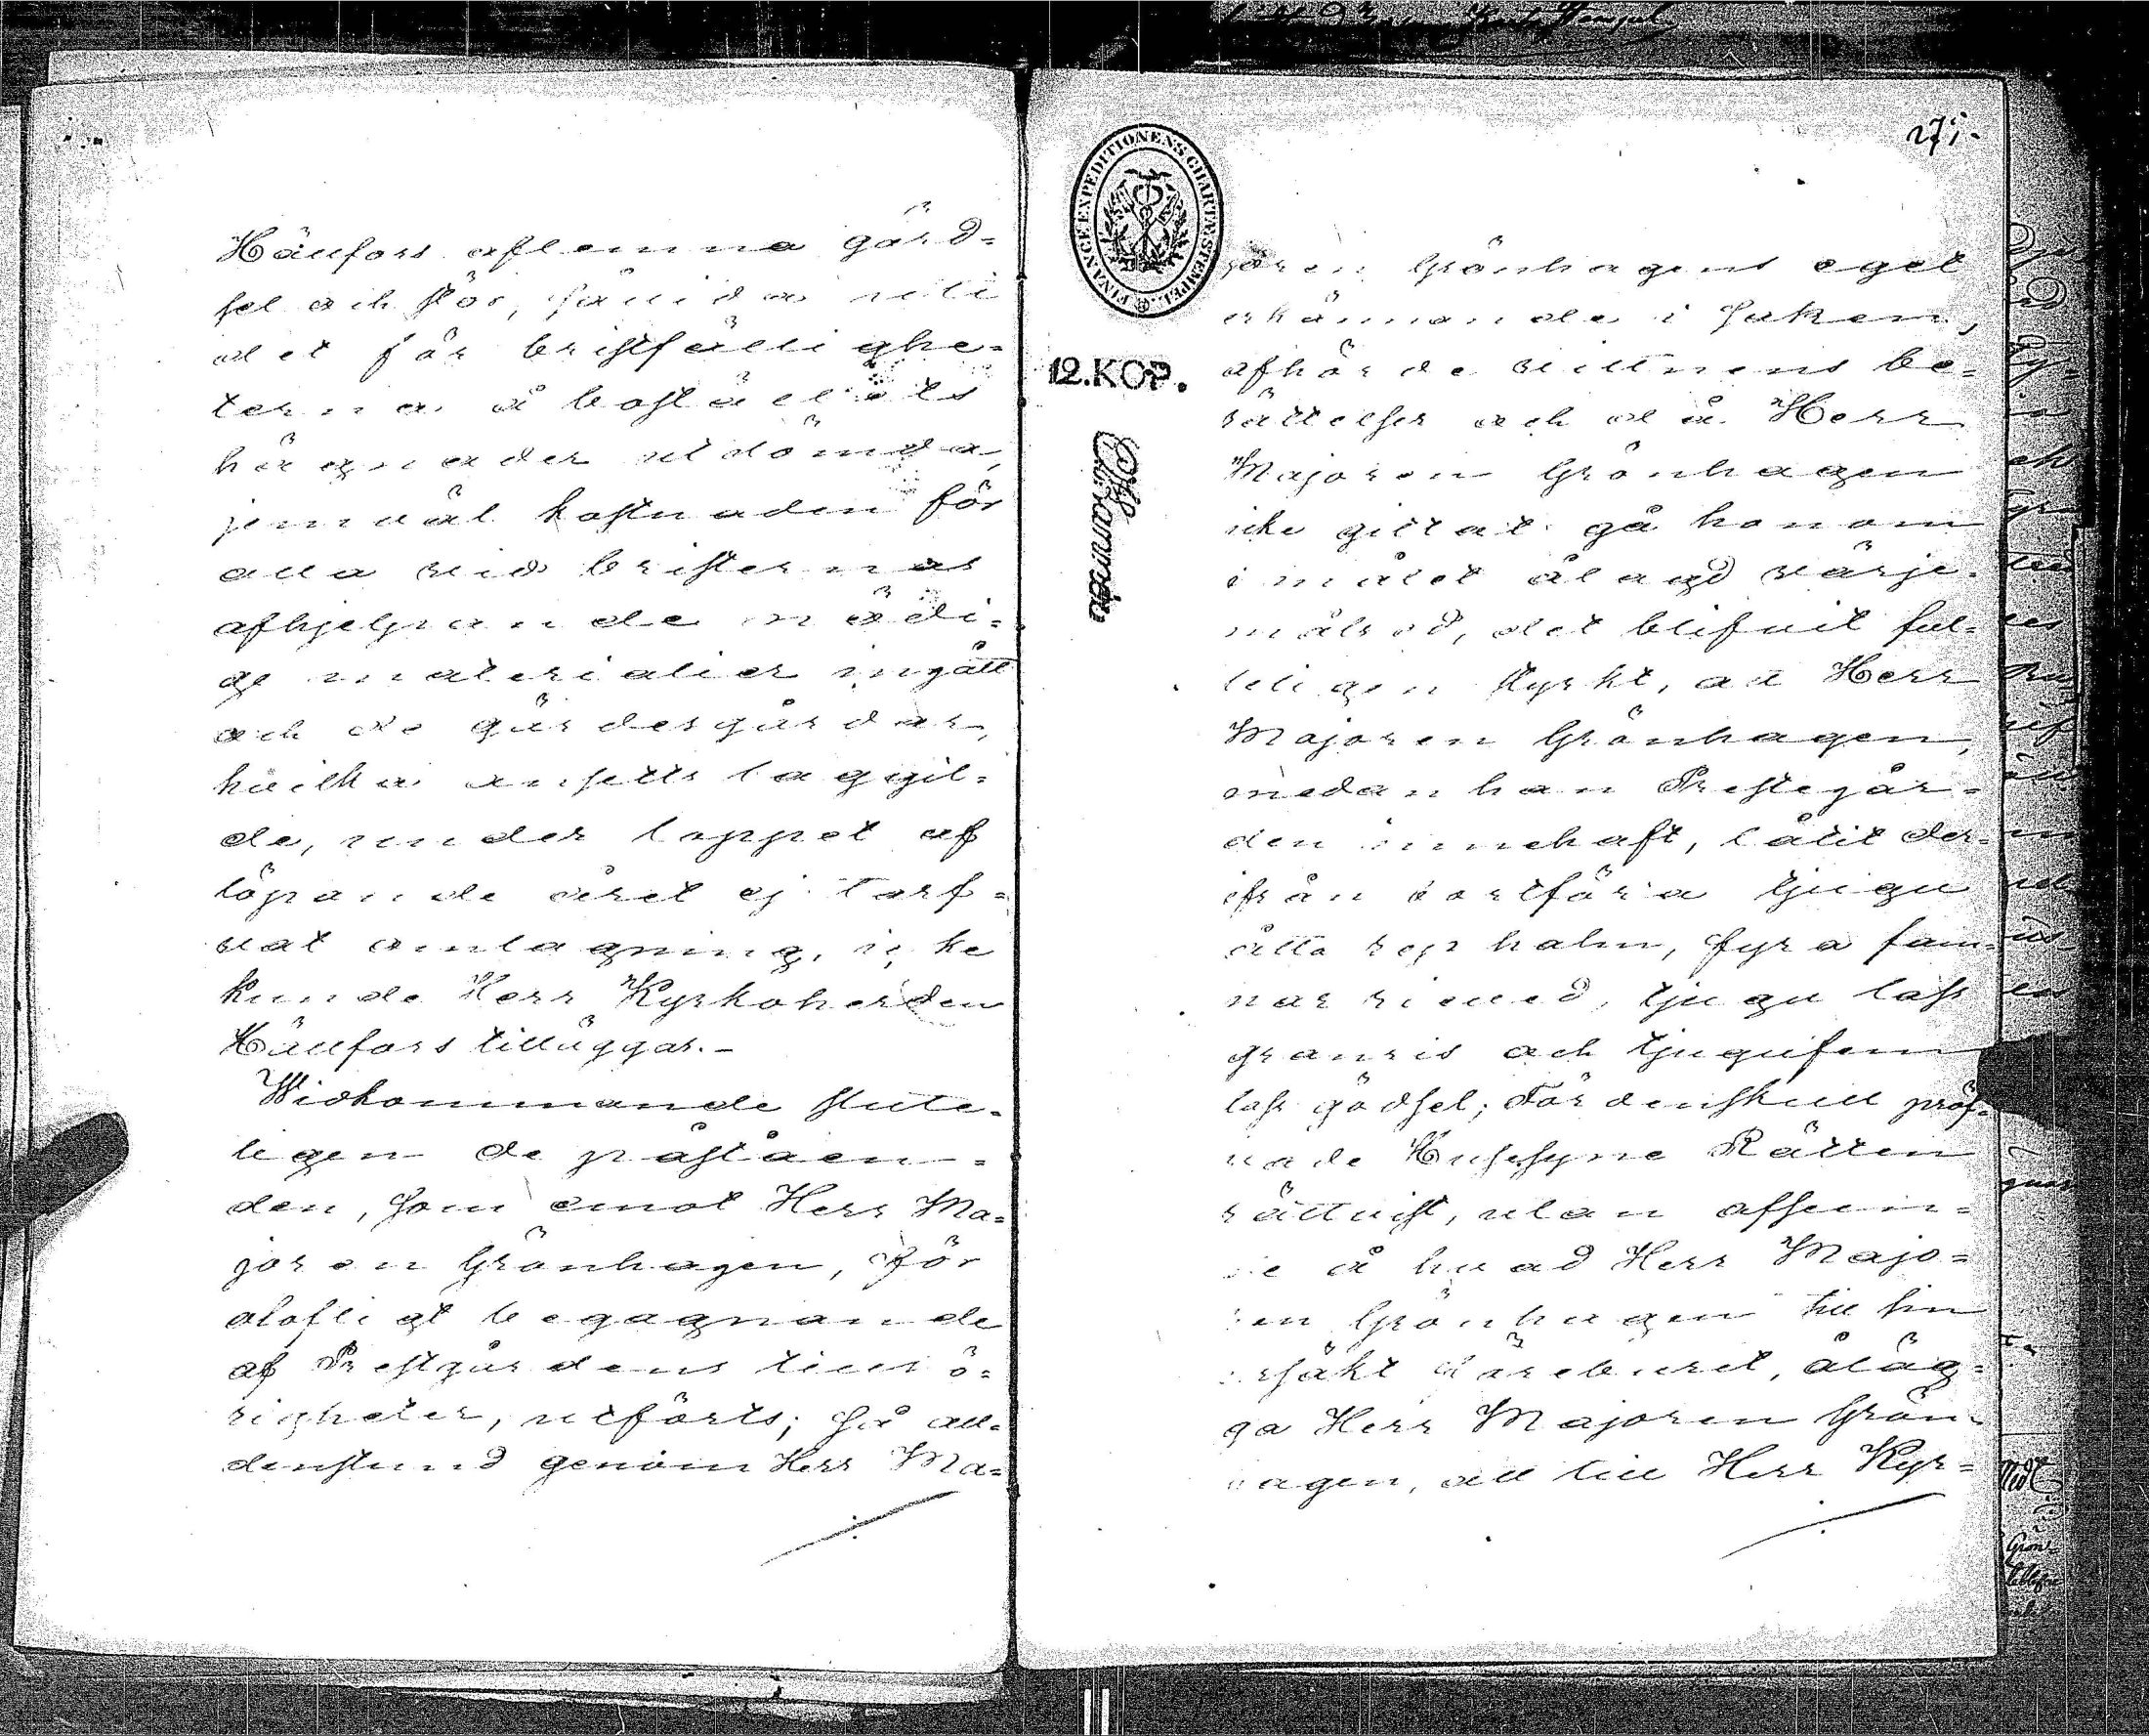 Hällfors aflemna gärd-
sel och stör, såvida uti
det för bristfällighe-
terna å boställets
hägnader utdömda,
jemväl kostnaden för
alla vid bristernas
afhjelpande nödi-
ge materialier ingått
och de gärdesgårdar,
hvilka ansetts laggil-
de, under loppet af
löpande året ej tarf-
vat omlagning, icke
kunde Herr Kyrkoherden
Hällfors tilläggas.-
Widkommande slute-
ligen de påståen-
den, som emot Herr Ma-
joren Grönhagen, för
olofligt begagnande
af Prestgårdens tillhö-
righeter, utförts; så all-
denstund genom Herr Ma-
275.
FINANCE EXPEDITIONENS CHARTÆ STEMPEL
12.KOP.
joren Grönhagens eget
erkännande i saken,
afhörde vittnens be-
rättelser och då Herr
Majoren Grönhagen
icke gittat gå honom
i målet ålagd värje-
målsed, det blifvit ful-
leligen styrkt, att Herr
Majoren Grönhagen,
medan han Prestegår-
den innehaft, låtit der-
ifrån bortföra tjugu
åtta rep halm, fyra fam-
nar rieved, tjugu lass
granris och tjugufem
lass gödsel; Fördenskull pröf-
vade Husesyns Rätten
rättvist, utan afseen-
de å hvad Herr Majo-
ren Grönhagen till sin
ursäkt föreburit, åläg-
ga Herr Majoren Grön-
hagen, att till Herr Kyr-